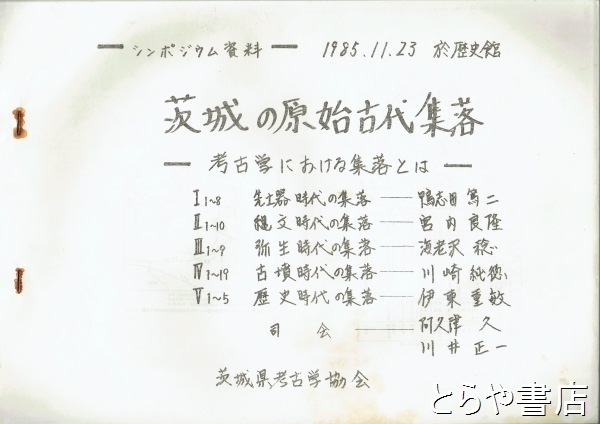 ー シンポジウム資料 ー 1985.11.23 於歴史館
茨城の原始古代集落
ー 考古学における集落とは ー
Ⅰ1~8 先土器時代の集落 —— 鴨志田篤二
Ⅱ1~10 縄文時代の集落 —— 宮内良隆
Ⅲ1~9 弥生時代の集落 —— 海老沢稔
Ⅳ1~19 古墳時代の集落 —— 川崎純徳
Ⅴ1~5 歴史時代の集落 —— 伊東重敏
司会 —— 阿久津久
川井正一
茨城県考古学協会
とらや書店